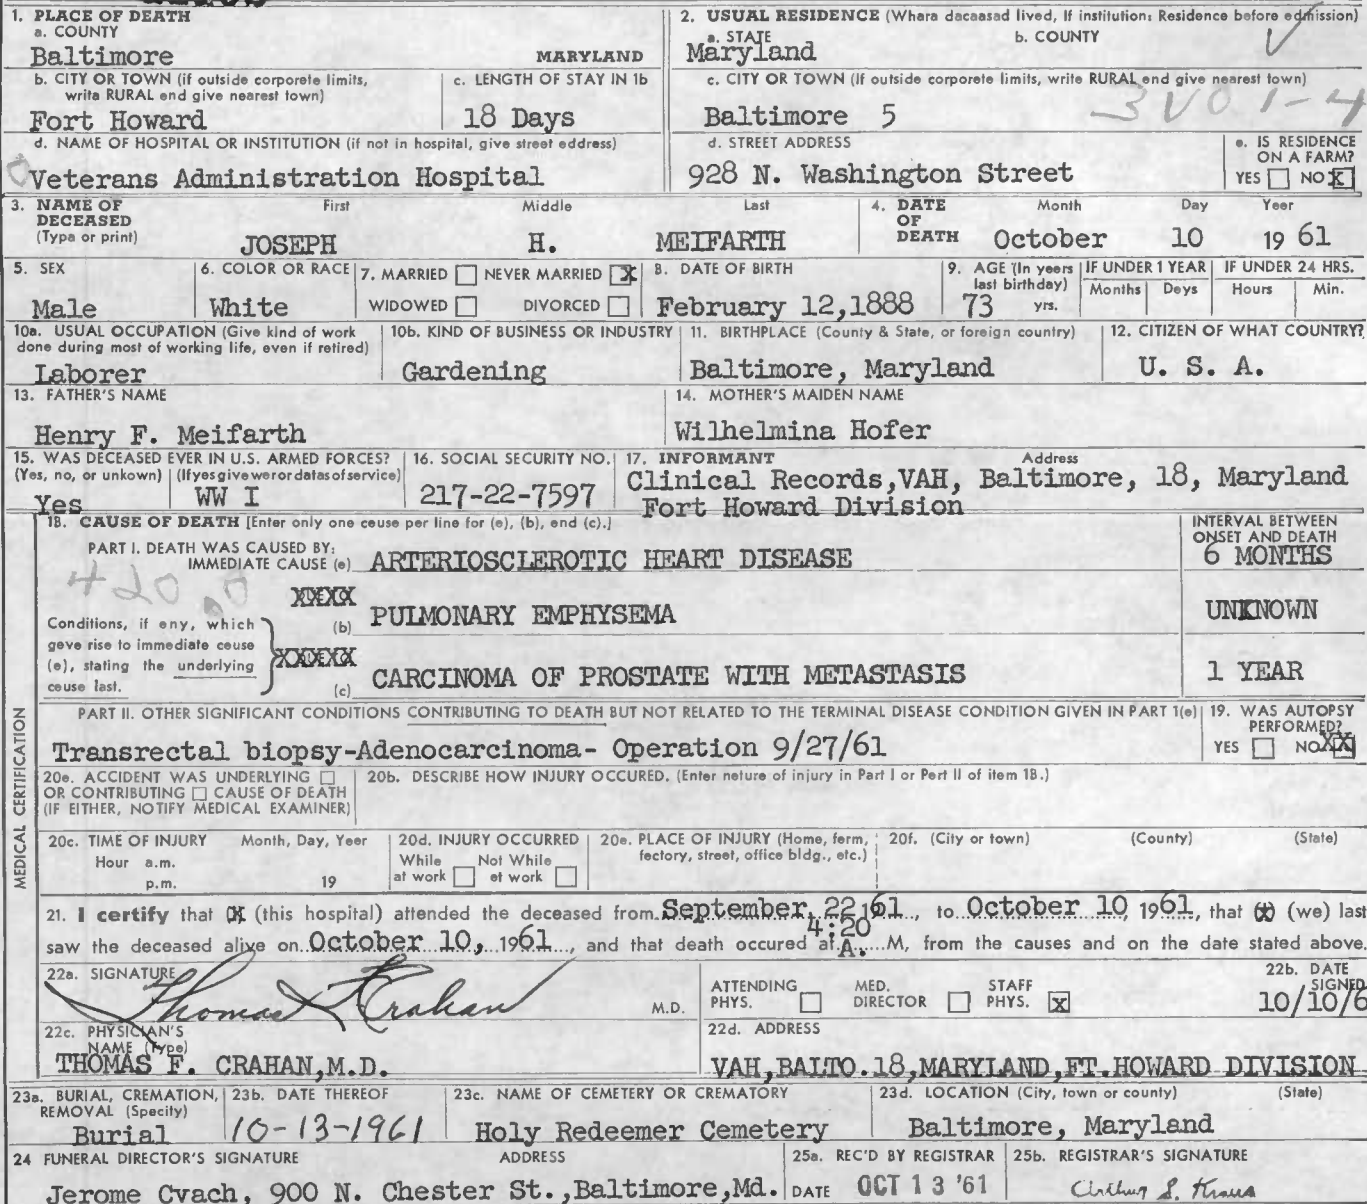 1. PLACE OF DEATH
a. COUNTY
Baltimore MARYLAND
2. USUAL RESIDENCE (Where deceased lived, If institution: Residence before admission)
a. STATE b. COUNTY
Maryland
b. CITY OR TOWN (if outside corporate limits, write RURAL and give nearest town)
Fort Howard
c. LENGTH OF STAY IN 1b
18 Days
c. CITY OR TOWN (If outside corporate limits, write RURAL and give nearest town)
Baltimore 5
3V01-4
d. NAME OF HOSPITAL OR INSTITUTION (if not in hospital, give street address)
Veterans Administration Hospital
d. STREET ADDRESS
928 N. Washington Street
e. IS RESIDENCE ON A FARM?
YES NO X
3. NAME OF DECEASED (Type or print)
First Middle Last
JOSEPH H. MEIFARTH
4. DATE OF DEATH
Month Day Year
October 10 19 61
5. SEX
Male
6. COLOR OR RACE
White
7. MARRIED NEVER MARRIED X
WIDOWED DIVORCED
8. DATE OF BIRTH
February 12,1888
9. AGE (In years last birthday)
73 yrs.
IF UNDER 1 YEAR
Months Days
IF UNDER 24 HRS.
Hours Min.
10a. USUAL OCCUPATION (Give kind of work done during most of working life, even if retired)
Laborer
10b. KIND OF BUSINESS OR INDUSTRY
Gardening
11. BIRTHPLACE (County & State, or foreign country)
Baltimore, Maryland
12. CITIZEN OF WHAT COUNTRY?
U. S. A.
13. FATHER'S NAME
Henry F. Meifarth
14. MOTHER'S MAIDEN NAME
Wilhelmina Hofer
15. WAS DECEASED EVER IN U.S. ARMED FORCES?
(Yes, no, or unkown) (If yes give wer or datas of service)
Yes WW I
16. SOCIAL SECURITY NO.
217-22-7597
17. INFORMANT Address
Clinical Records,VAH, Baltimore, 18, Maryland
Fort Howard Division
18. CAUSE OF DEATH [Enter only one cause per line for (a), (b), and (c).]
INTERVAL BETWEEN ONSET AND DEATH
PART I. DEATH WAS CAUSED BY:
IMMEDIATE CAUSE (a) ARTERIOSCLEROTIC HEART DISEASE 6 MONTHS
420.0
XXXX
(b) PULMONARY EMPHYSEMA UNKNOWN
Conditions, if any, which gave rise to immediate cause (a), stating the underlying cause last.
XXXXX
(c) CARCINOMA OF PROSTATE WITH METASTASIS 1 YEAR
MEDICAL CERTIFICATION
PART II. OTHER SIGNIFICANT CONDITIONS CONTRIBUTING TO DEATH BUT NOT RELATED TO THE TERMINAL DISEASE CONDITION GIVEN IN PART 1(a)
Transrectal biopsy-Adenocarcinoma- Operation 9/27/61
19. WAS AUTOPSY PERFORMED?
YES NO XX
20a. ACCIDENT WAS UNDERLYING
OR CONTRIBUTING CAUSE OF DEATH
(IF EITHER, NOTIFY MEDICAL EXAMINER)
20b. DESCRIBE HOW INJURY OCCURED. (Enter nature of injury in Part I or Part II of item 18.)
20c. TIME OF INJURY Month, Day, Year
Hour a.m.
p.m. 19
20d. INJURY OCCURRED
While at work Not While at work
20e. PLACE OF INJURY (Home, farm, factory, street, office bldg., etc.)
20f. (City or town) (County) (State)
21. I certify that X (this hospital) attended the deceased from September 22 1961, to October 10, 1961, that (X) (we) last
saw the deceased alive on October 10, 1961, and that death occured at 4:20 A. M, from the causes and on the date stated above.
22a. SIGNATURE
Thomas F Crahan M.D.
ATTENDING PHYS. MED. DIRECTOR STAFF PHYS. X
22b. DATE SIGNED
10/10/6
22c. PHYSICIAN'S NAME (Type)
THOMAS F. CRAHAN,M.D.
22d. ADDRESS
VAH,BALTO.18,MARYLAND,FT.HOWARD DIVISION
23a. BURIAL, CREMATION, REMOVAL (Specify)
Burial
23b. DATE THEREOF
10-13-1961
23c. NAME OF CEMETERY OR CREMATORY
Holy Redeemer Cemetery
23d. LOCATION (City, town or county) (State)
Baltimore, Maryland
24 FUNERAL DIRECTOR'S SIGNATURE ADDRESS
Jerome Cvach, 900 N. Chester St.,Baltimore,Md.
25a. REC'D BY REGISTRAR
DATE OCT 13 '61
25b. REGISTRAR'S SIGNATURE
Arthur S. Kraus